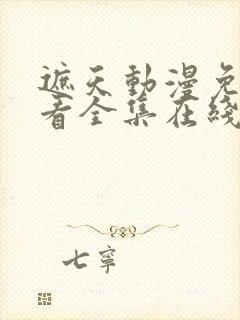 遮天動漫免
看全集在綫
七寧